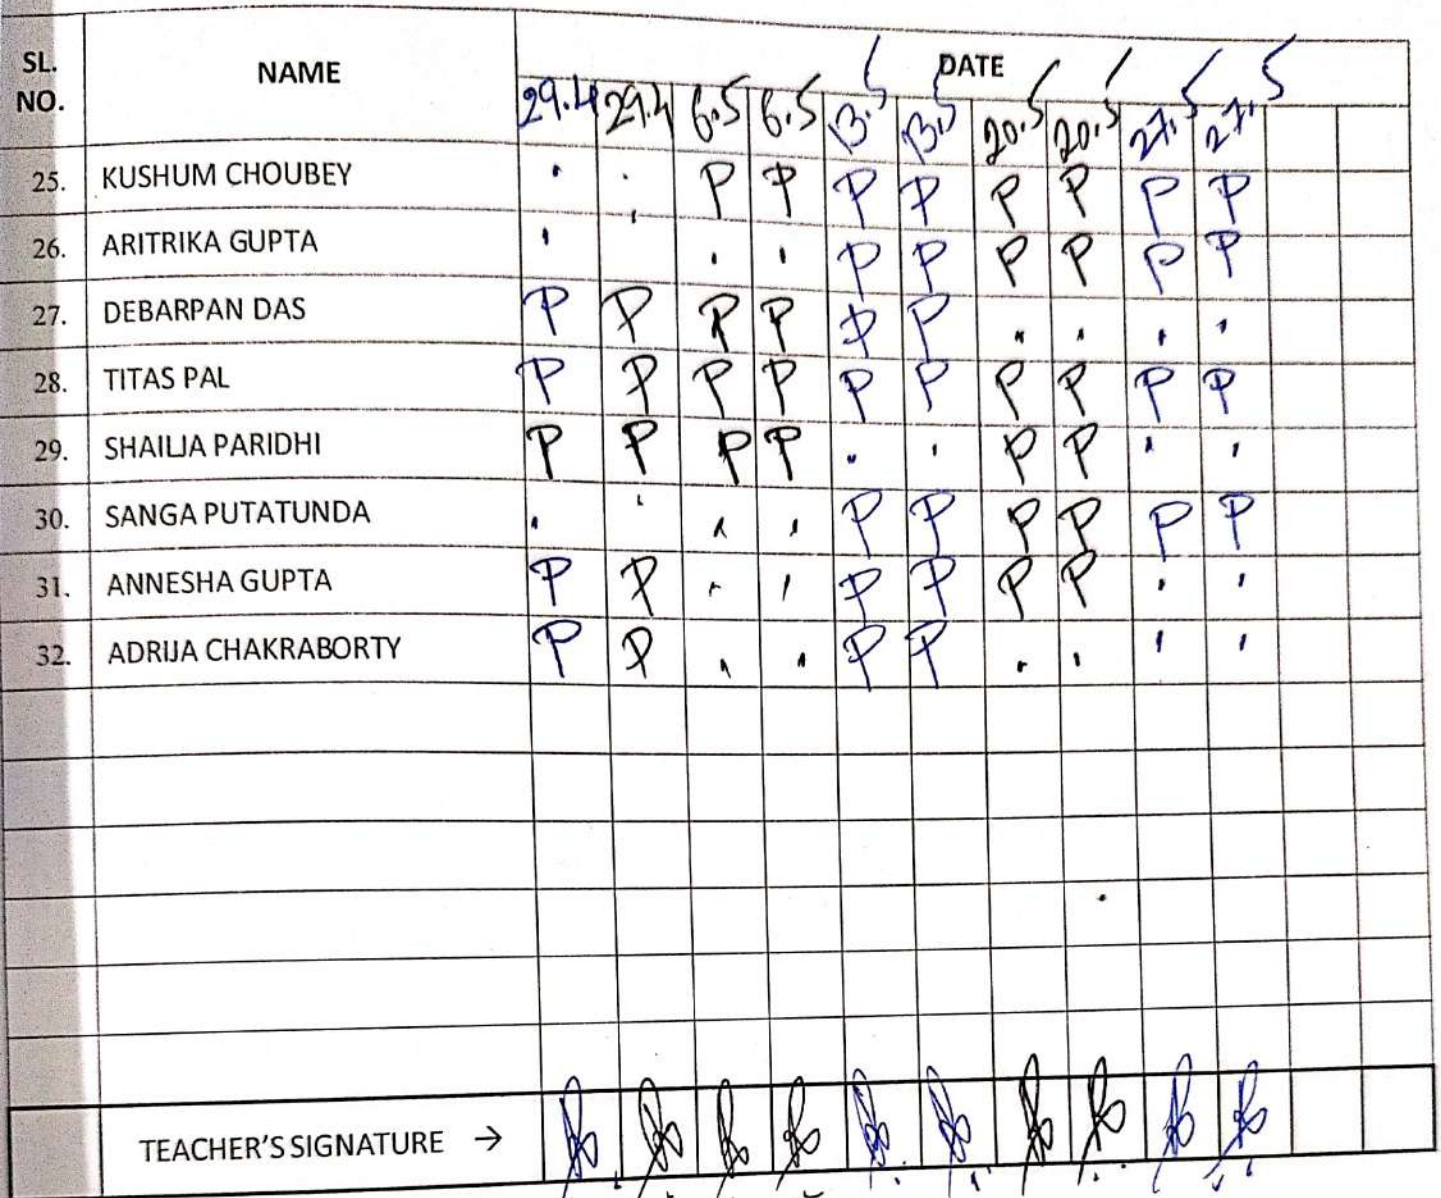 SL. NO. NAME DATE
29.4 29.4 6.5 6.5 13.5 13.5 20.5 20.5 27.5 27.5
25. KUSHUM CHOUBEY . . P P P P P P P P
26. ARITRIKA GUPTA . . . . P P P P P P
27. DEBARPAN DAS P P P P P P . . . .
28. TITAS PAL P P P P P P P P P P
29. SHAILJA PARIDHI P P P P . . P P . .
30. SANGA PUTATUNDA . . . . P P P P P P
31. ANNESHA GUPTA P P . . P P P P . .
32. ADRIJA CHAKRABORTY P P . . P P . . . .
TEACHER'S SIGNATURE →